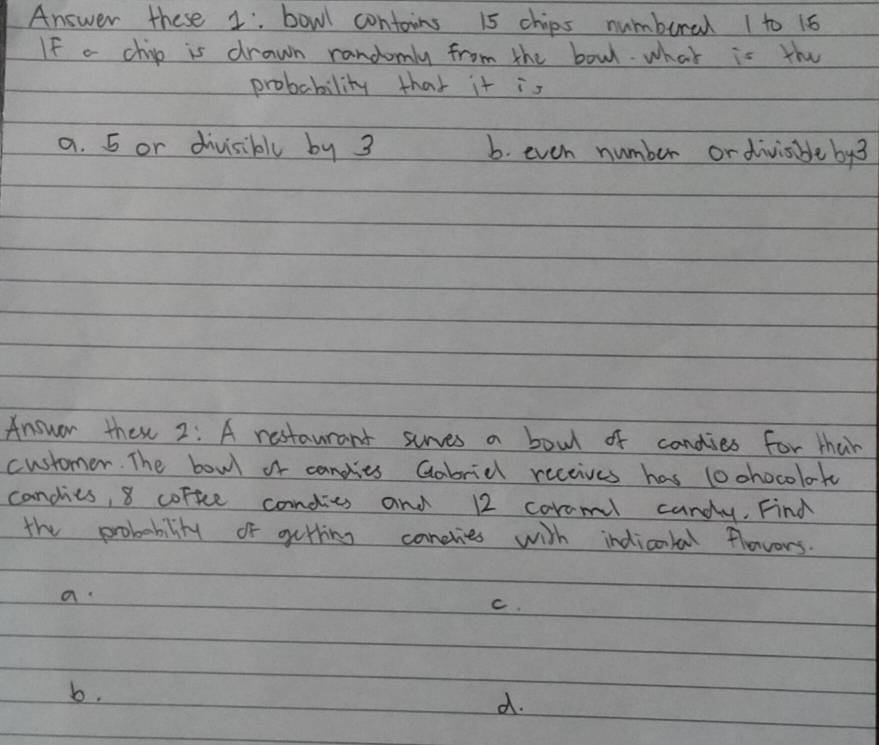 Answer these 1: bowl contains 15 chips numbered 1 to 15
IF a chip is drawn randomly from the bowl. what is the
probability that it is
a. 5 or divisible by 3 b. even number or divisible by 3
Answer these 2: A restaurant serves a bowl of candies for their
customer. The bowl of candies Gabriel receives has 10 chocolate
candies, 8 coffee candies and 12 caramel candy. Find
the probability of getting candies with indicated flavors.
a. c.
b. d.